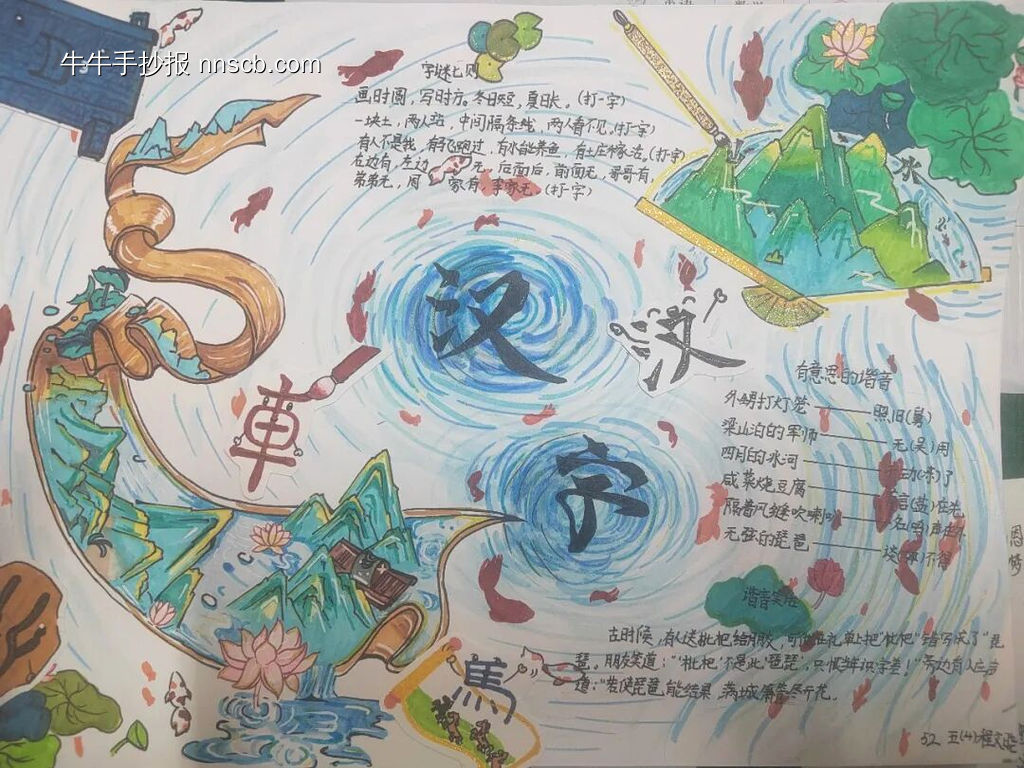 牛牛手抄报 nnscb.com
字谜七则
画时圆，写时方。冬日短，夏日长。(打一字)
一块土，两人站，中间隔条线，两人看不见。(打一字)
有人不是我，有马跑过，有水能养鱼，有土庄稼活。(打一字)
右边有，左边无，后面后，前面无，哥哥有，
弟弟无，家有，李家无 (打一字)
汉
汉
水
車
字
有意思的谐音
外甥打灯笼——照旧(舅)
梁山泊的军师——无(吴)用
四月的冰河——动(冻)了
咸菜烧豆腐——言(盐)在先
隔着风缝吹喇叭——名(鸣)声在外
无弦的琵琶——谈(弹)不得
谐音笑话
古时候，有人送枇杷给朋友，可他在礼单上把"枇杷"错写成了"琵
琶。朋友笑道："'枇杷'不是此'琵琶'，只恨当年识字差！"旁边有人应声
道："若使琵琶能结果，满城箫管尽开花。
馬
52 五(4)程文